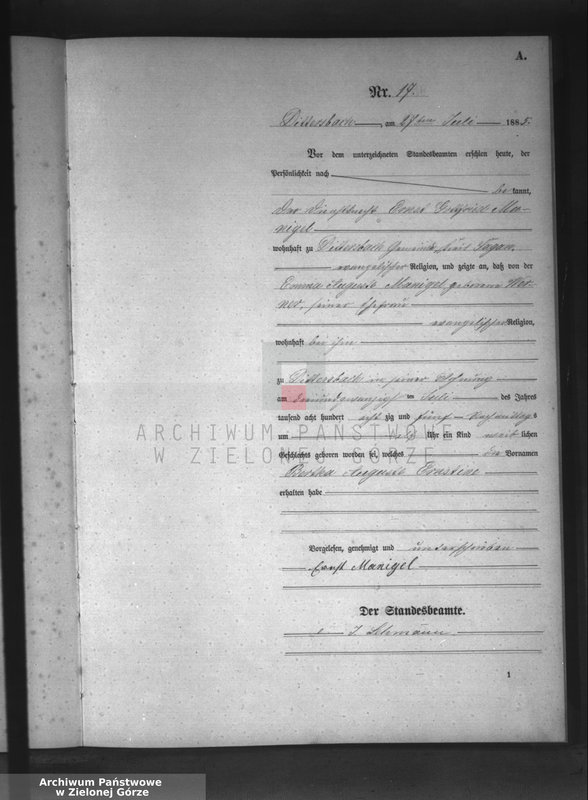 A.
Nr. 17.
Dittersbach, am 27ten Juli 1885.
Vor dem unterzeichneten Standesbeamten erschien heute, der
Persönlichkeit nach
bekannt,
der Dienstknecht Ernst Gottfried Ma-
nigel
wohnhaft zu Dittersbach Gemeinde Kreis Sagan,
evangelischer Religion, und zeigte an, daß von der
Emma Auguste Manigel geborene Wer-
ner, seiner Ehefrau
evangelischer Religion,
wohnhaft bei ihm
zu Dittersbach in seiner Wohnung
am dreiundzwanzigsten Juli des Jahres
tausend acht hundert acht zig und fünf Nachmittags
um Uhr ein Kind weiblichen
Geschlechts geboren worden sei, welches die Vornamen
Bertha Auguste Ernstine
erhalten habe
Vorgelesen, genehmigt und unterschrieben
Ernst Manigel
Der Standesbeamte.
J. Lehmann
1
ARCHIWUM PAŃSTWOWE
W ZIELONEJ GÓRZE
Archiwum Państwowe
w Zielonej Górze